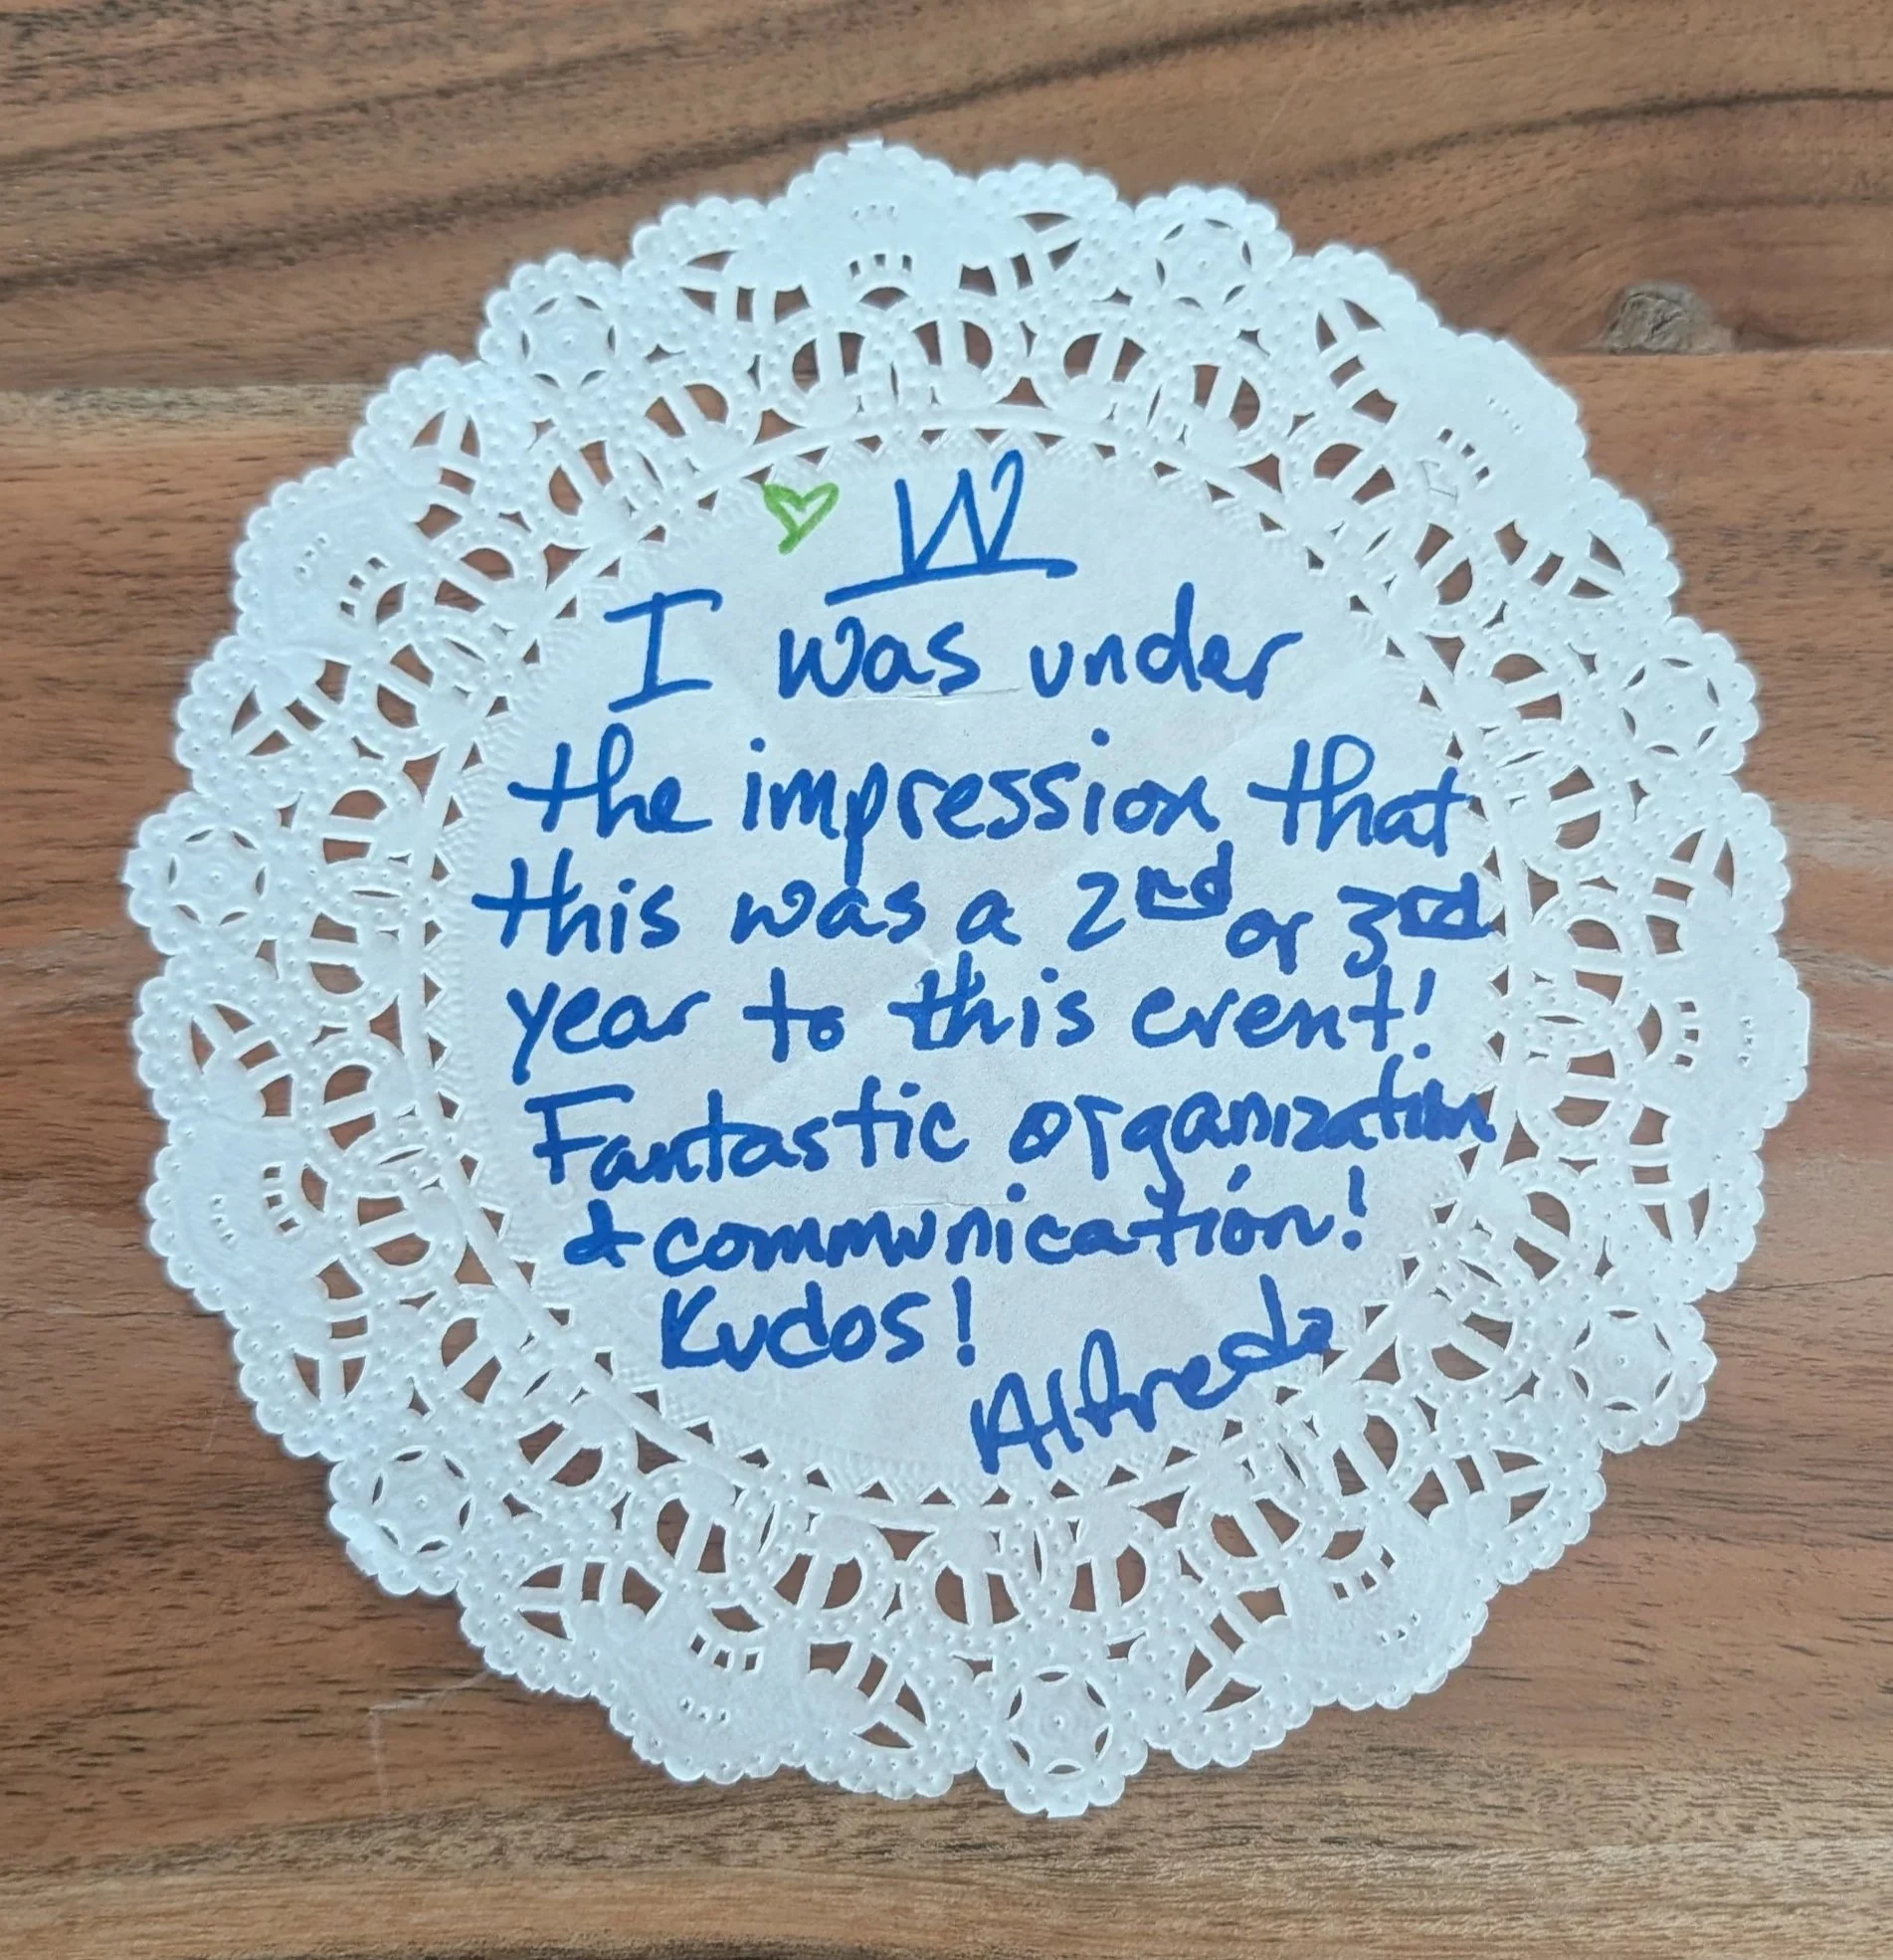 W
I was under
the impression that
this was a 2nd or 3rd
year to this event!
Fantastic organization
+ communication!
Kudos!
Alfreda